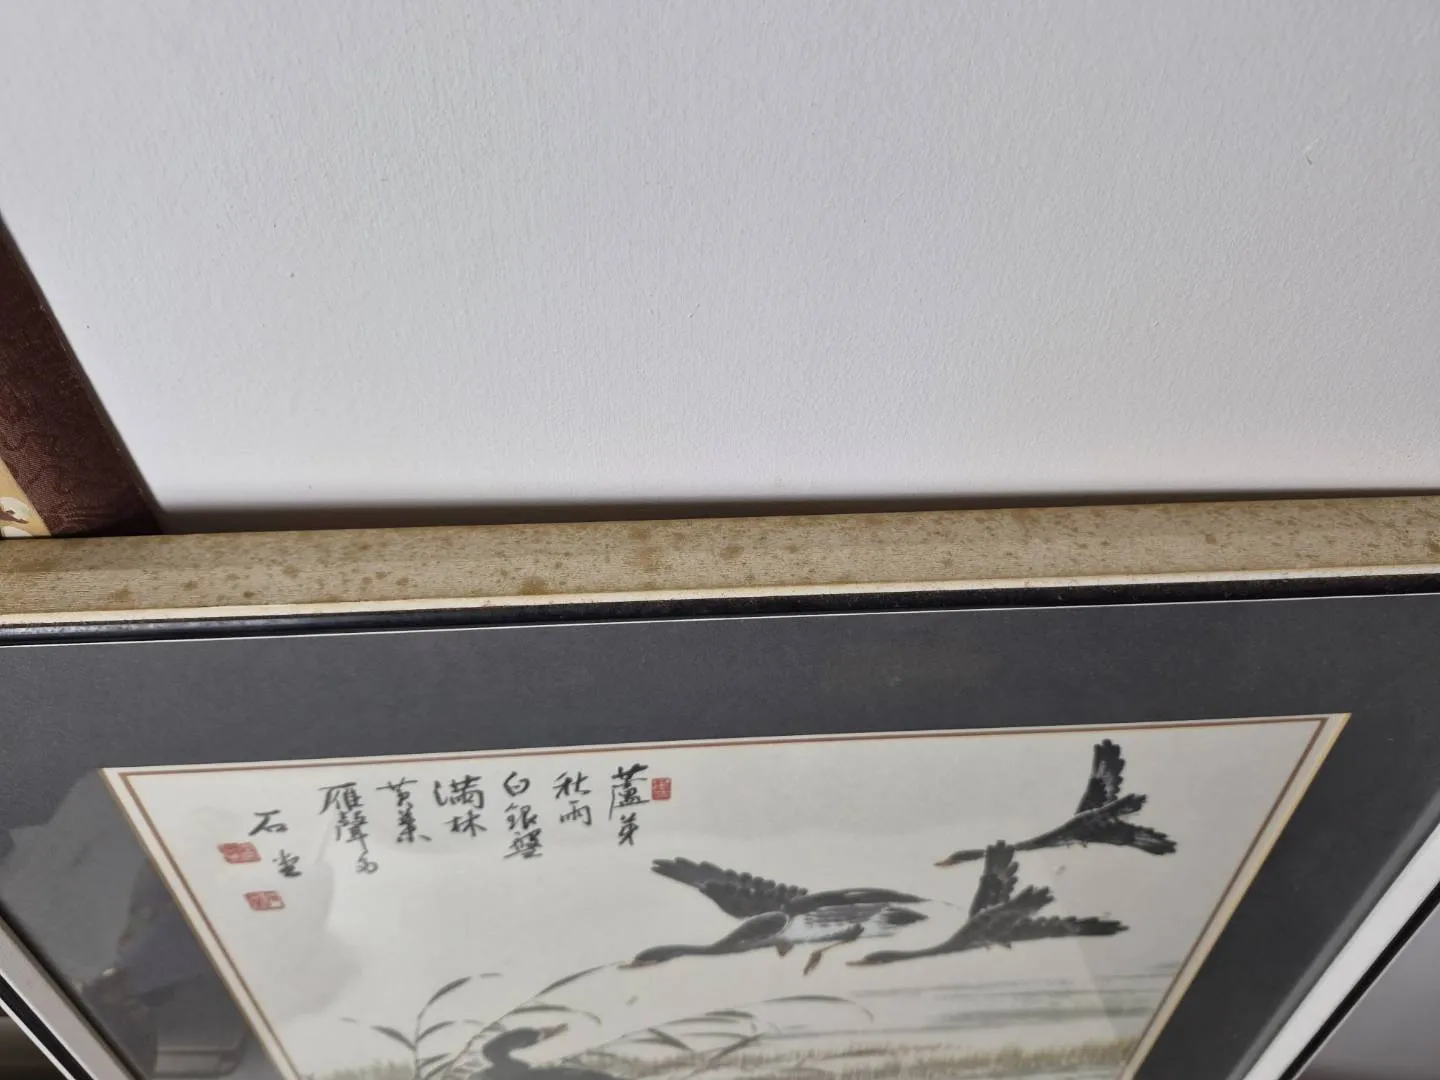 蘆芽
秋雨
白銀盤
滿林
黃葉
雁聲多
石堂